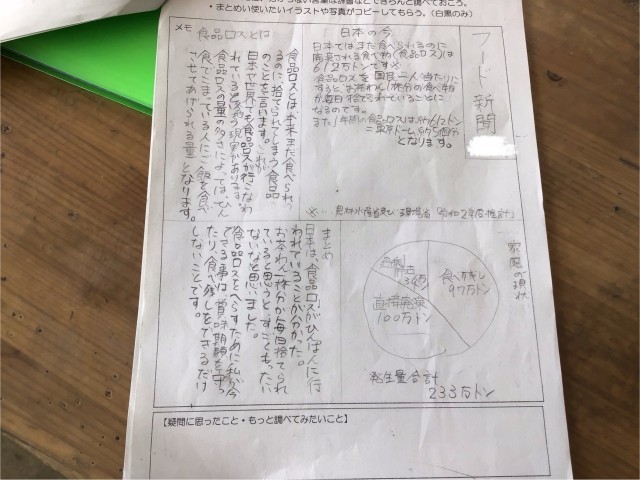 ・まとめい使いたいイラストや写真がコピーしてもらう。(白黒のみ)
フード新聞
日本の今
日本ではまだ食べられるのに
廃棄される食べ物(食品ロス)は
612万トンです※
食品ロスを国民一人当たりに
すると、お茶わん1杯分の食べ物
が毎日捨てられていることに
なるのです。
また1年間の食品ロスは約612トン
=東京ドーム約5個分
となります。
※…農林水産省及び環境省「令和2年度推計」
メモ
食品ロスとは
食品ロスとは、本来まだ食べられ
るのに、捨てられてしまう食品
のことを言います。これが
日本や世界でも食品ロスが行こなわ
れているという現実があります。
食品ロスの量の多さによっては、ひん
食でこまっている人にご飯を食べ
させてあげられる量)となります。
家庭の現状
食べ残し
97万トン
過剰
除去
直接廃棄
100万トン
発生量合計
233万トン
まとめ
日本は、食品ロスがひんぱんに行
われていることが分かった。
お茶わん一杯分が毎日捨てられ
ていると思うと、すごくもったい
ないなと思いました。
食品ロスをへらすために私が今
できる事は、賞味期限を守っ
たり、食べ残しをできるだけ
しないことです。
【疑問に思ったこと・もっと調べてみたいこと】